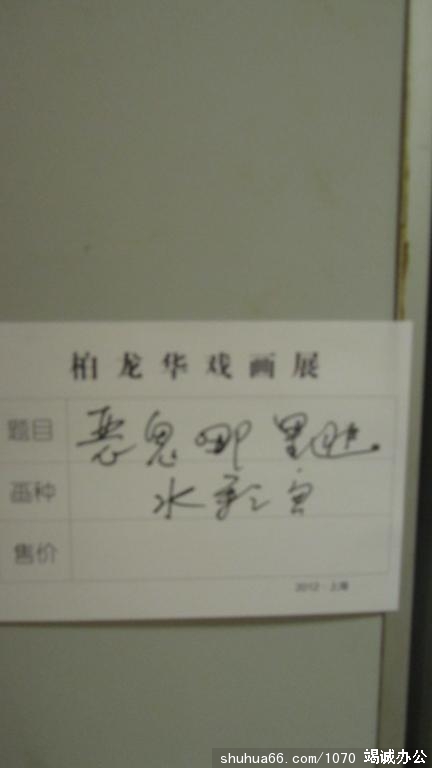 柏龙华戏画展
题目 恶鬼哪里逃
画种 水彩画
售价
2012·上海
shuhua66.com/1070 竭诚办公